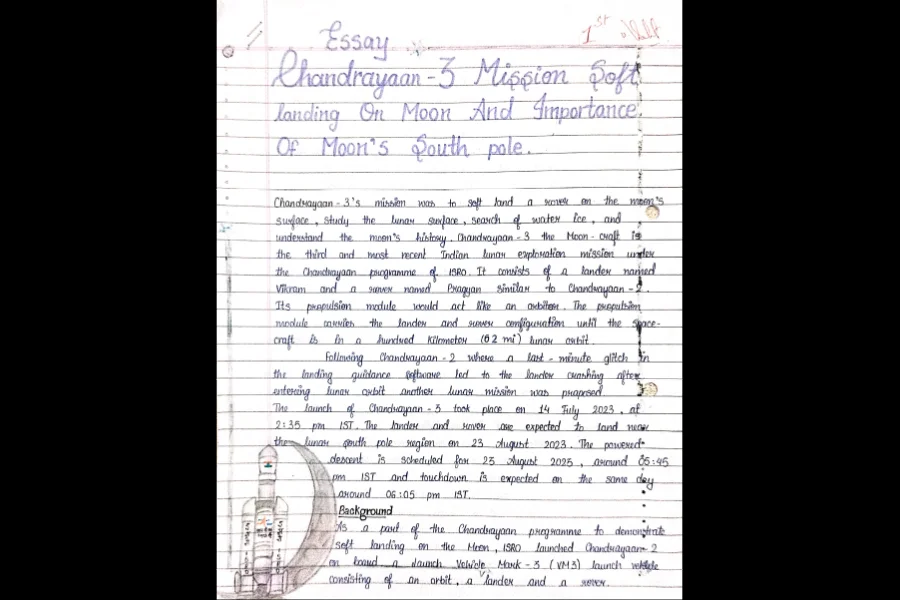 1st
Essay
Chandrayaan-3 Mission Soft
landing On Moon And Importance
Of Moon's South pole.
Chandrayaan-3's mission was to soft land a rover on the moon's
surface, study the lunar surface, search of water ice, and
understand the moon's history. Chandrayaan-3 the Moon-craft is
the third and most recent Indian lunar exploration mission under
the Chandrayaan programme of ISRO. It consists of a lander named
Vikram and a rover named Pragyan similar to Chandrayaan-2.
Its propulsion module would act like an orbiter. The propulsion
module carries the lander and rover configuration until the space-
craft is in a hundred Kilometer (62 mi) lunar orbit.
Following Chandrayaan-2 where a last-minute glitch in
the landing guidance software led to the lander crashing after
entering lunar orbit another lunar mission was proposed
The launch of Chandrayaan-3 took place on 14 July 2023, at
2:35 pm IST. The lander and rover are expected to land near
the lunar south pole region on 23 August 2023. The powered
descent is scheduled for 23 August 2023, around 05:45
pm IST and touchdown is expected on the same day
around 06:05 pm IST.
Background
As a part of the Chandrayaan programme to demonstrate
soft landing on the Moon, ISRO launched Chandrayaan-2
on board a launch Vehicle Mark-3 (VM3) launch vehicle
consisting of an orbit, a lander and a rover.